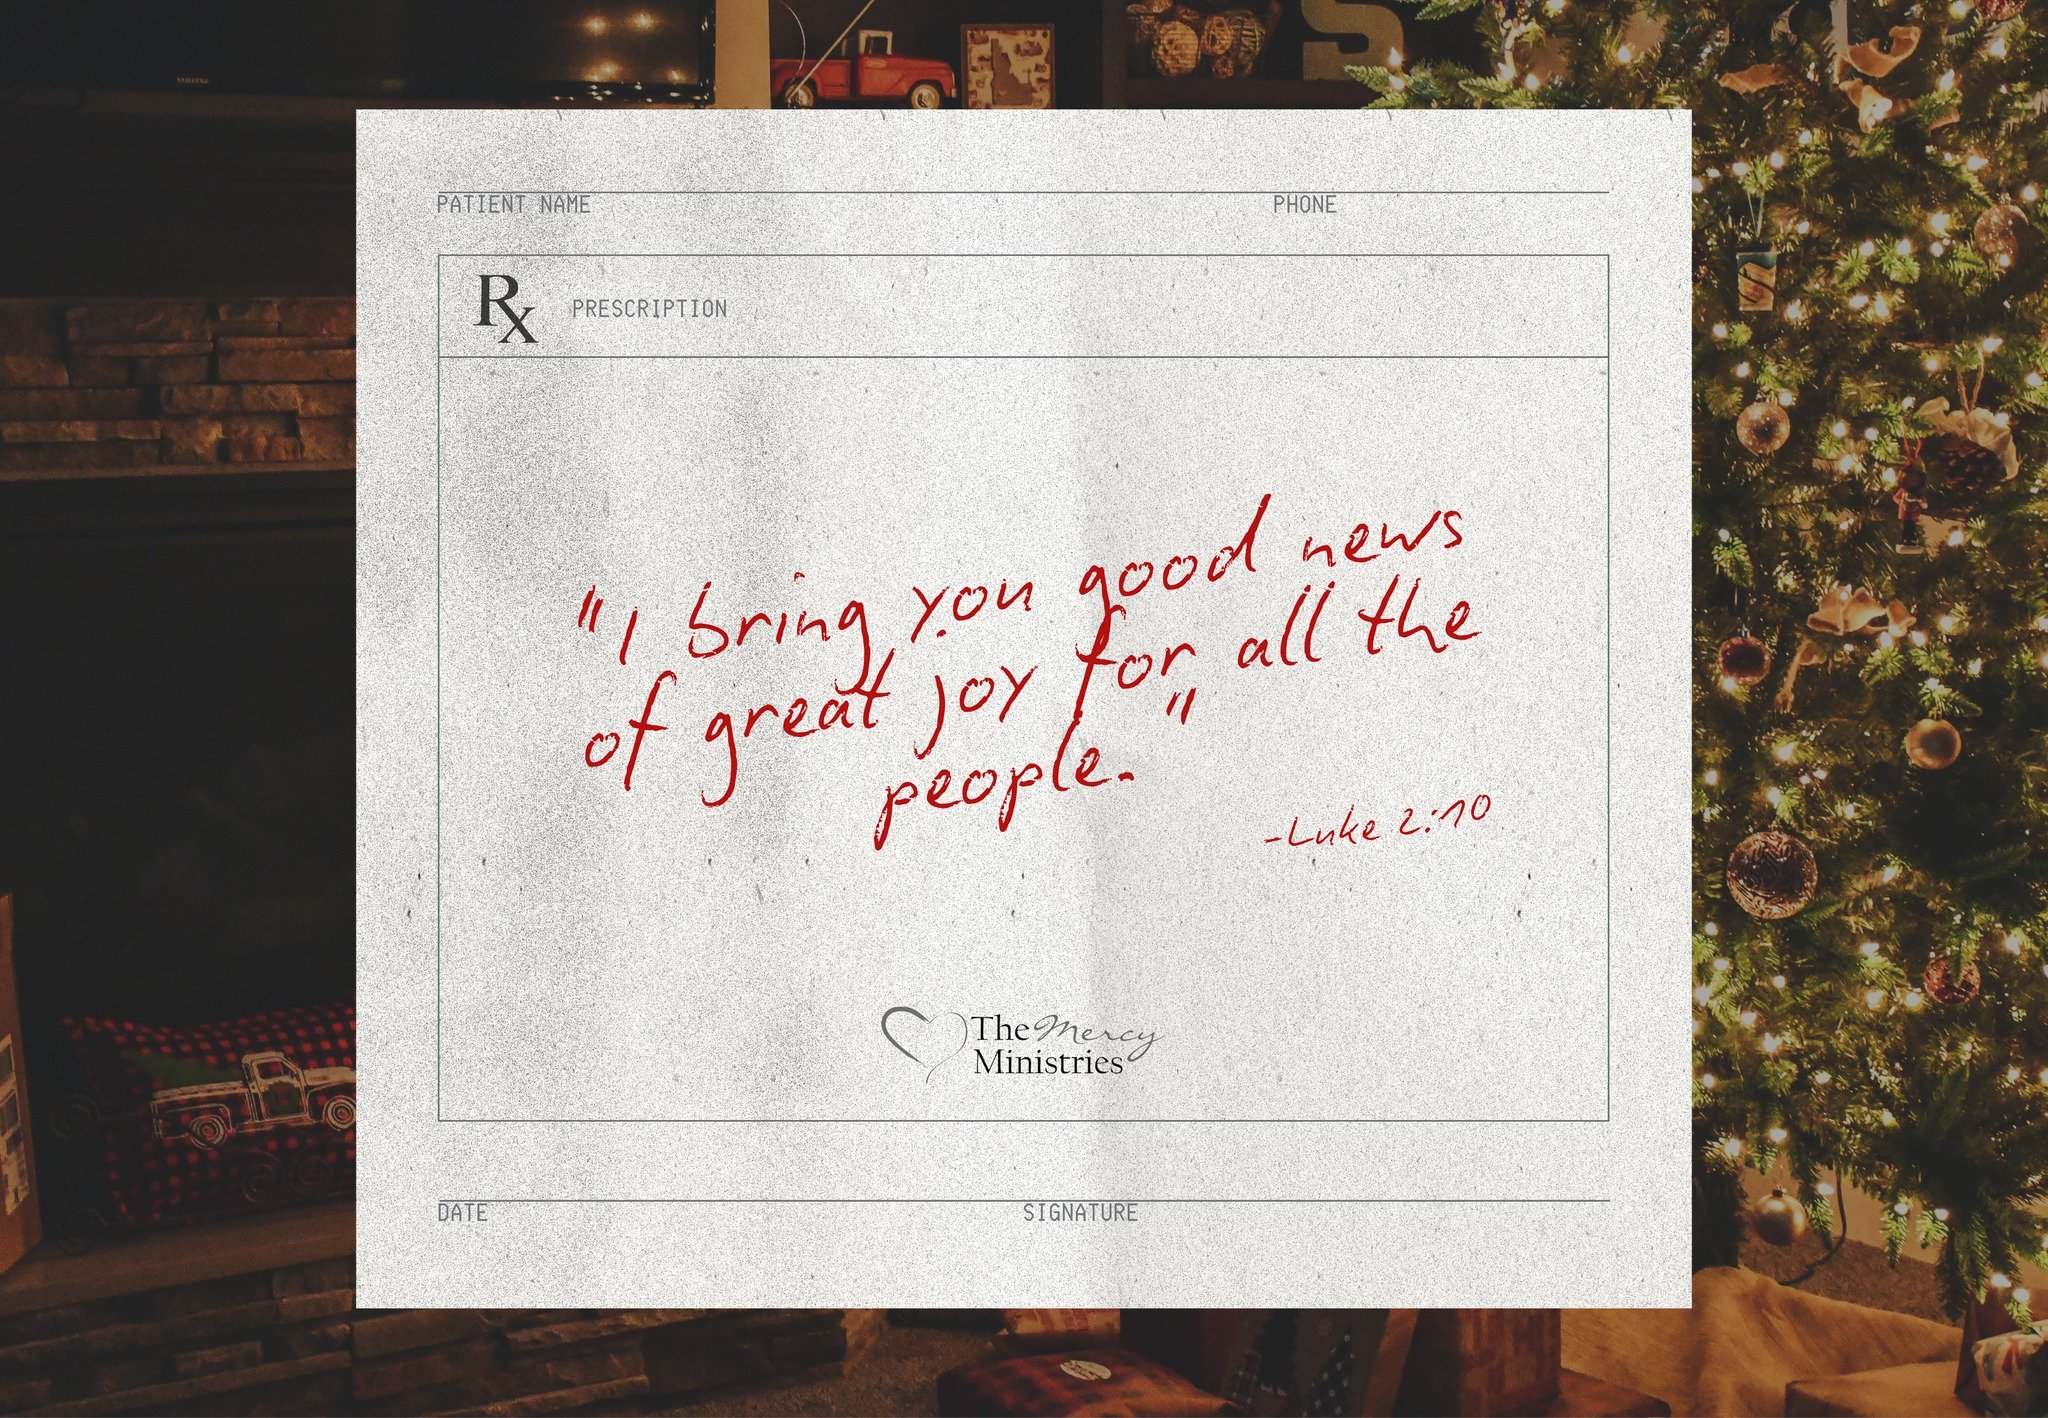 SAMSUNG
S
PATIENT NAME PHONE
Rx PRESCRIPTION
"I bring you good news
of great joy for all the
people."
-Luke 2:10
The Mercy
Ministries
DATE SIGNATURE